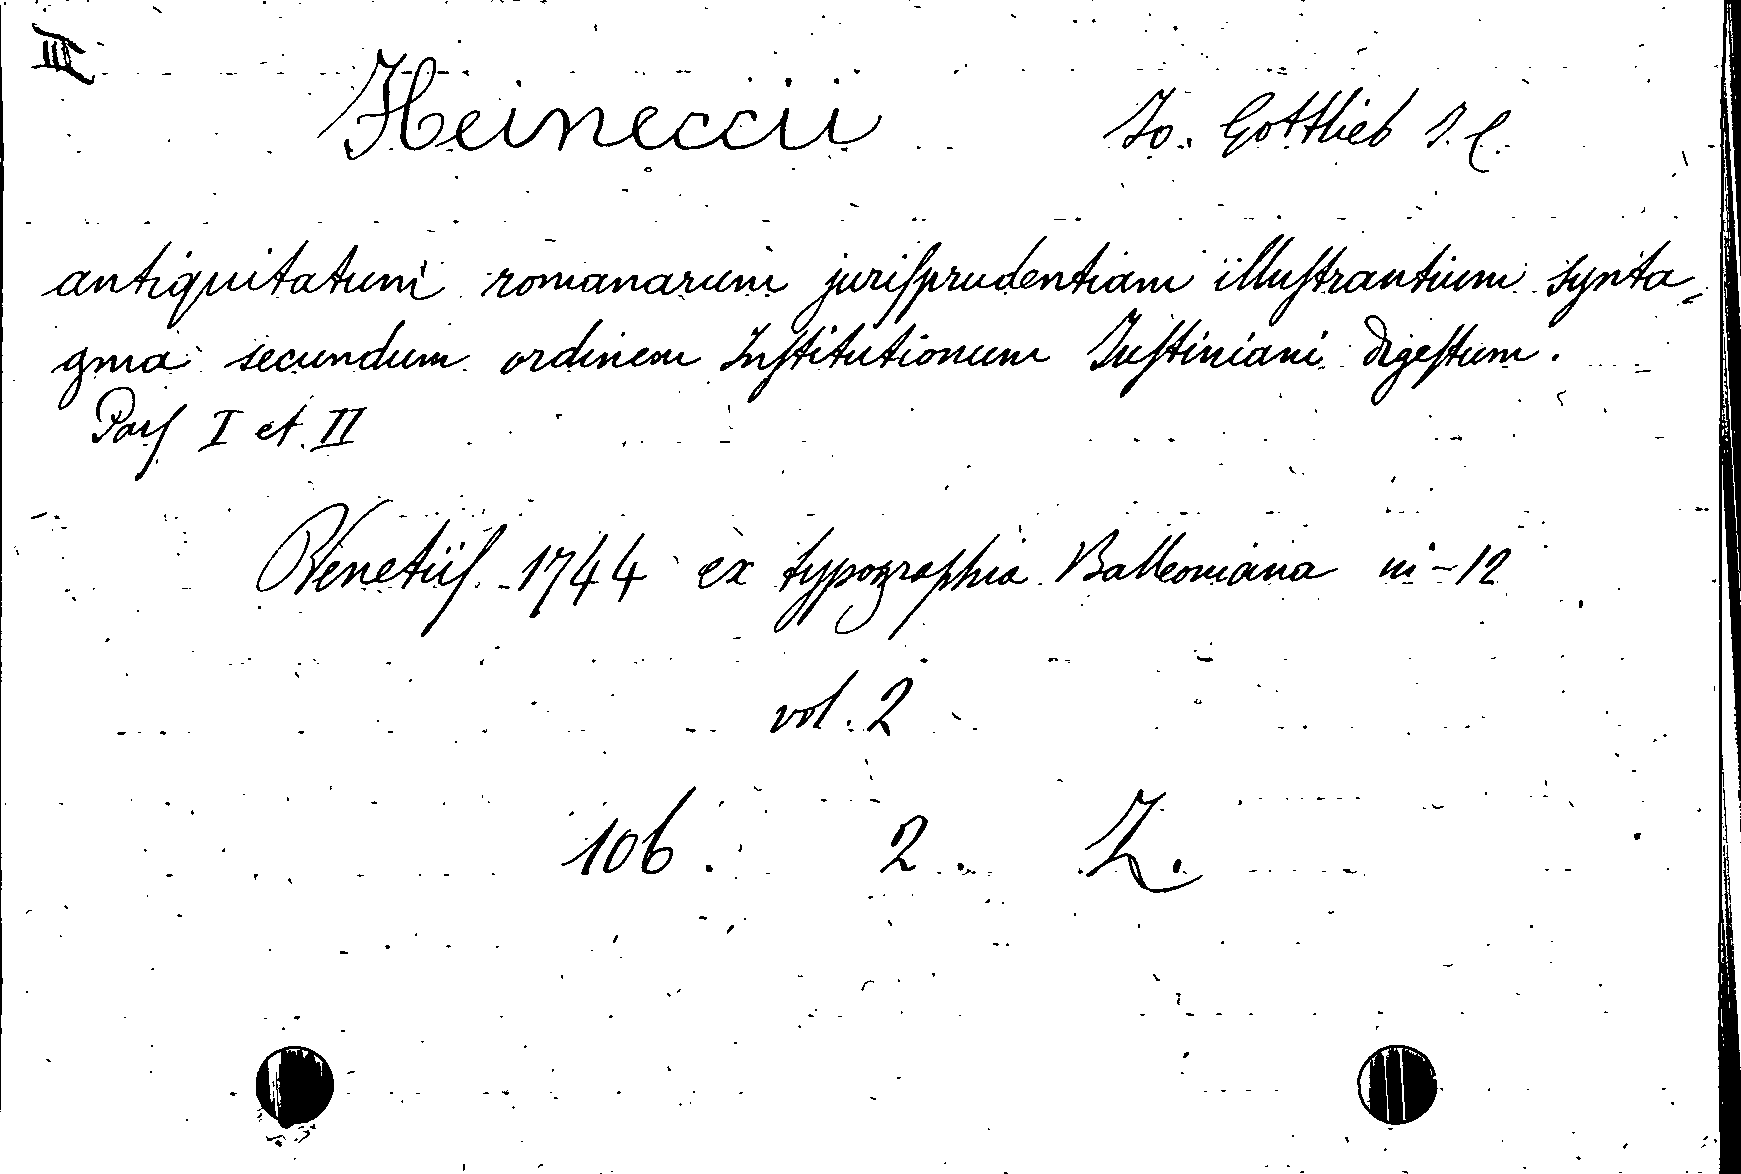 III
Heineccii Jo. Gottlieb J. C.
antiquitatum romanarum jurisprudentiam illustrantium synta-
gma secundum ordinem Institutionum Justiniani digestum.
Pars I et II
Venetiis 1744 ex typographia Balleoniana in-12
vol. 2
106. 2. Z.